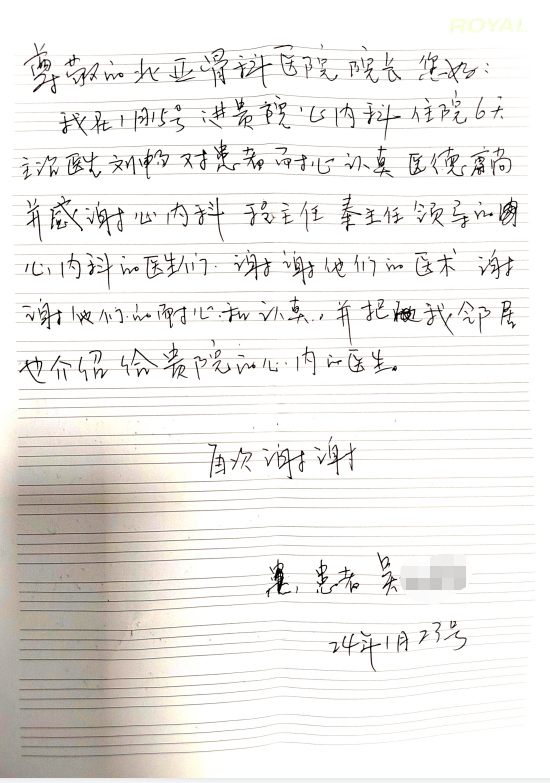 ROYAL
尊敬的北亚骨科医院 院长 您好：
我在1月15号 进贵院 心内科 住院6天
主治医生 刘畅 对患者 耐心 认真 医德高尚
并感谢心内科 程主任 秦主任 领导的
心内科的医生们. 谢谢他们的医术 谢
谢他们的耐心和认真, 并把我邻居
也介绍给贵院的心内的医生。
再次谢谢
患者 吴
24年1月23号